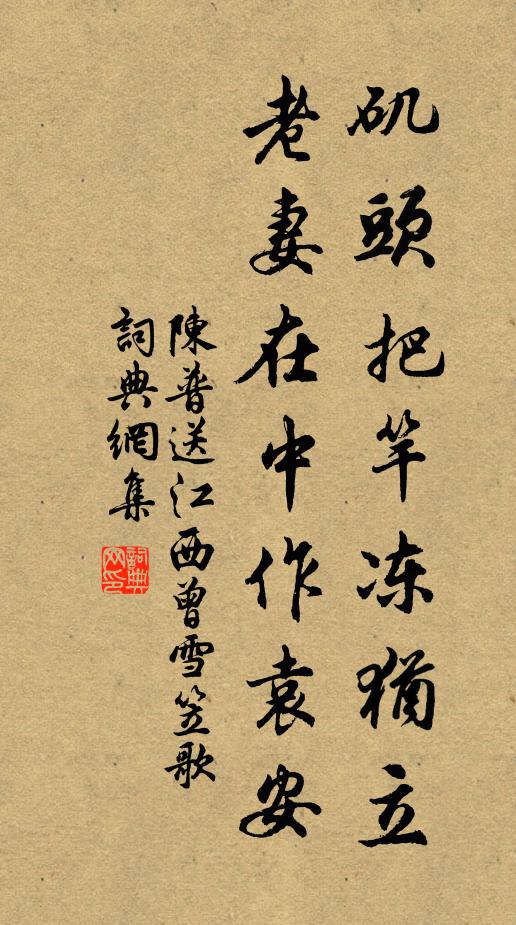 矶頭把竿冻猶立
老妻在中作袁安
陳普送江西曾雪笠歌
詞典網集
詞典网印